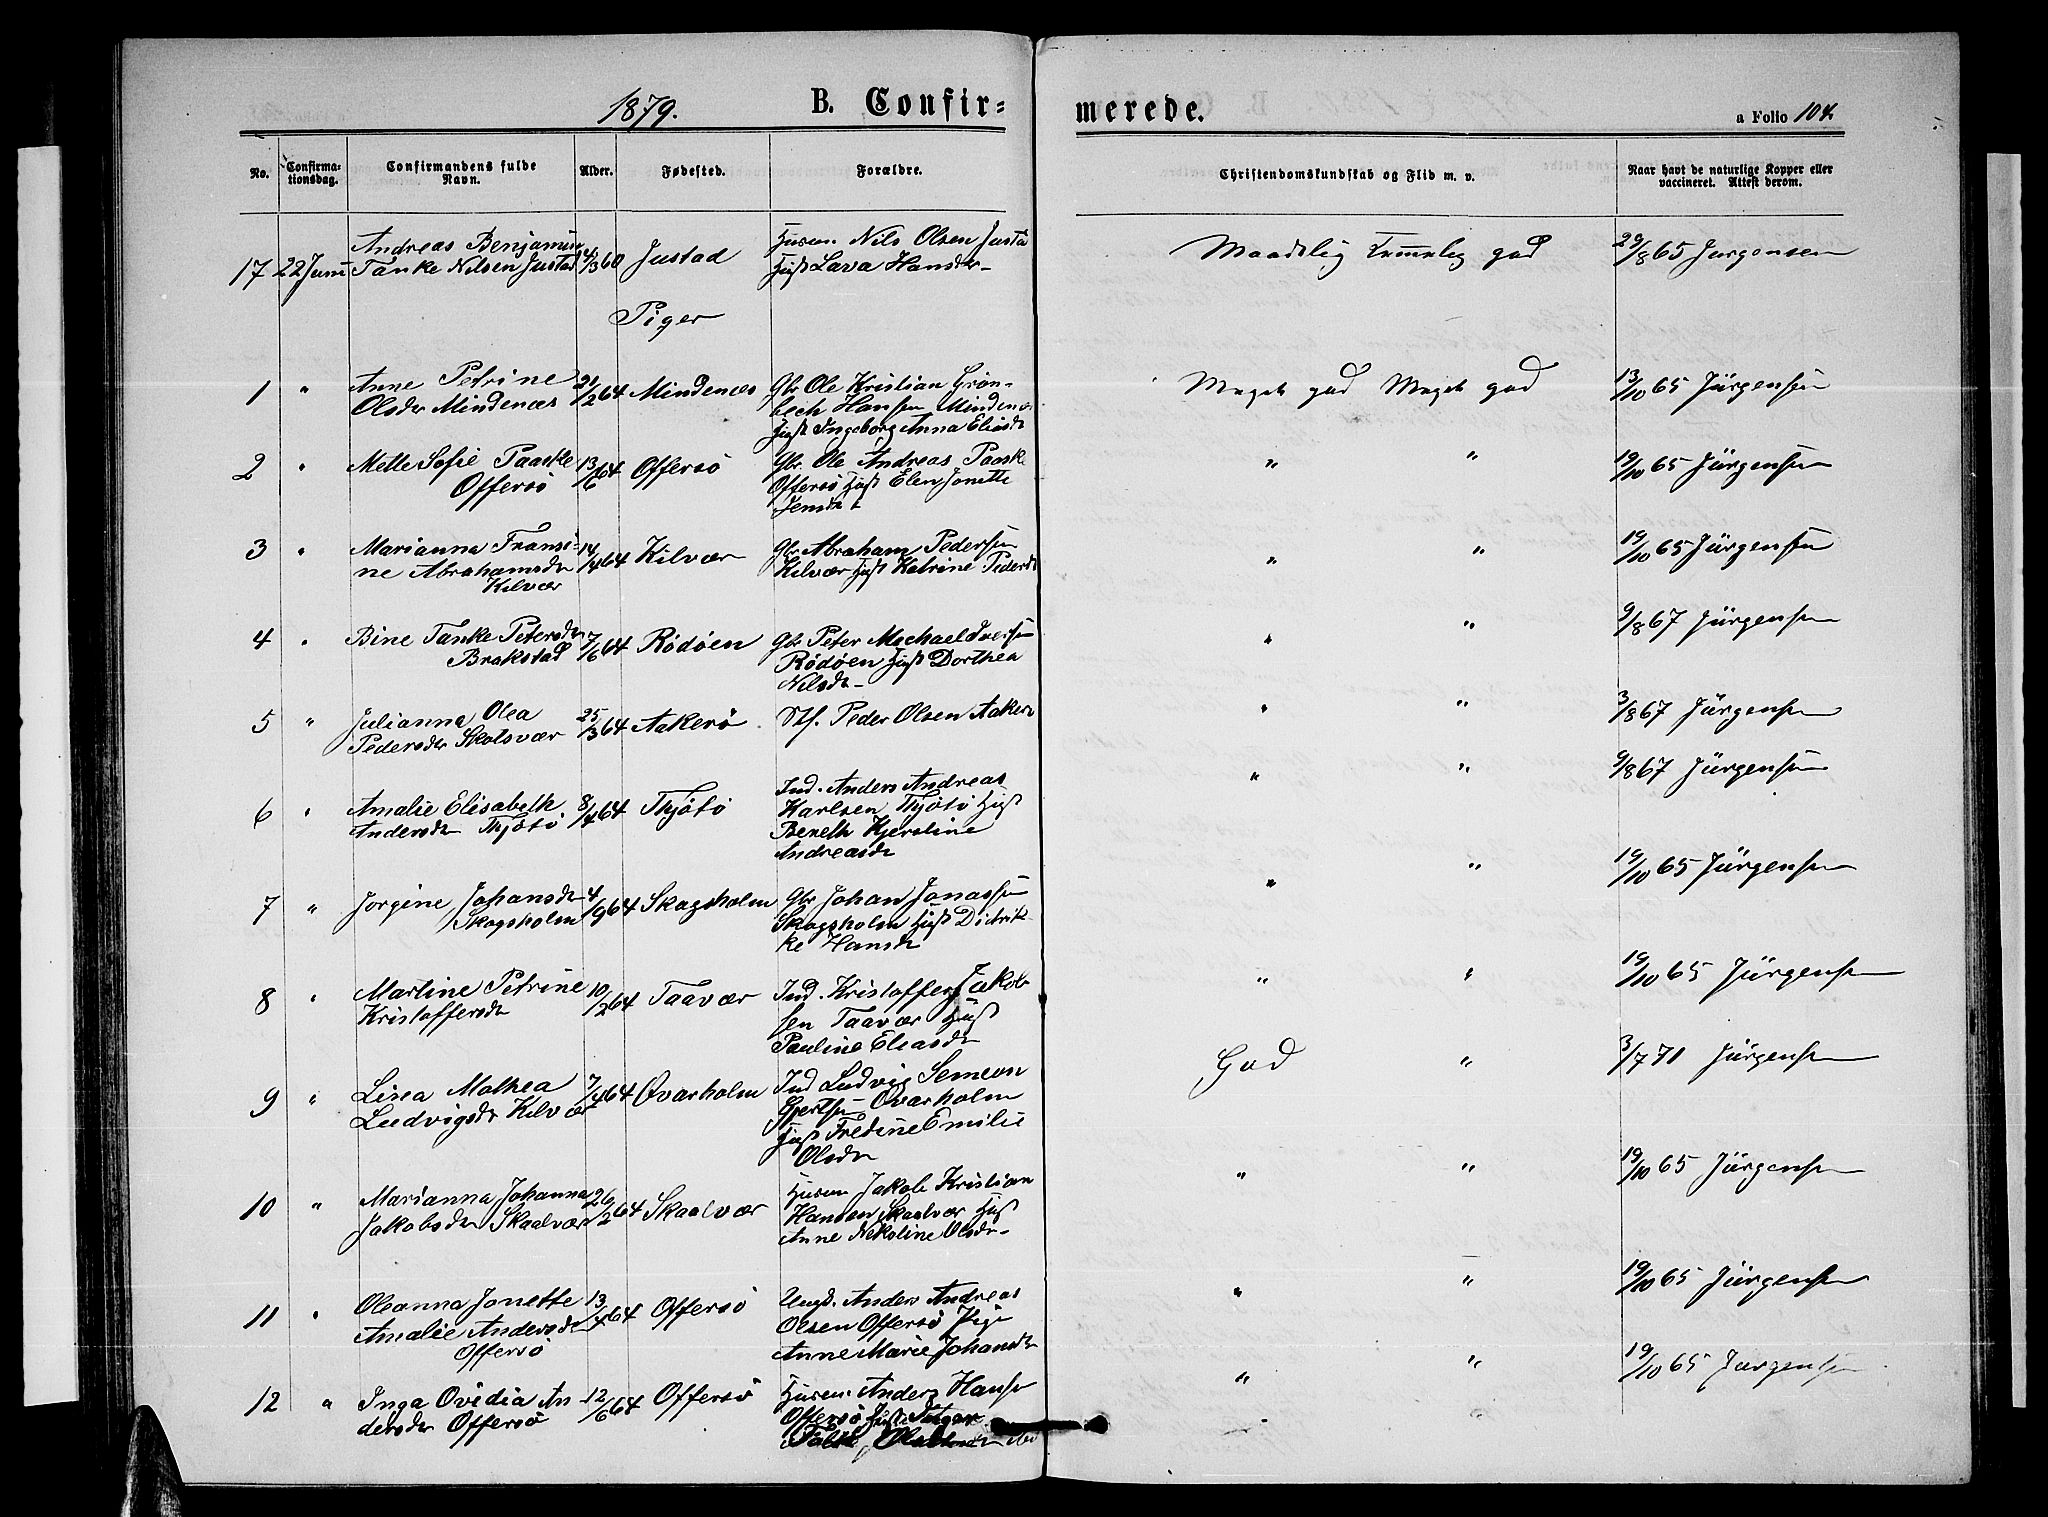 1879. B. Confir= merede. a Folio 104.
No. Confirma-tionsdag. Confirmandens fulde Navn. Alder. Fødested. Forældre. Christendomskundskab og Flid m. v. Naar havt de naturlige Kopper eller vaccineret. Attest derom.
Andreas Benjamin Husm Nils Olsen Justa
17 22 Juni Tanke Nilsen Justad 4/3 60 Justad Hust Lava Hansdr- Maadelig Temmelig god 29/8 65 Jørgensen
Piger
1 " Anne Petrine 21/2 64 Mindenæs Gbr. Ole Kristian Grøn- Meget god Meget god 13/10 65 Jürgensen
Olsdr Mindenæs bech Hansen Mindenæs
Hust Ingeborg Anna Eliasdr
2 " Mette Sofie Paaske 13/6 64 Offersö Gbr. Ole Andreas Paaske " " 19/10 65 Jürgensen
Offersö Offersö Hust Elen Jonette
Jensdr
3 " Marianna Fransi- 14/4 64 Kilvær Gbr Abraham Pedersen " " 19/10 65 Jürgensen
ne Abrahamsdr Kilvær Hust Katrine Pedersd
Kilvær
4 " Bine Tanke Petersdr 7/6 64 Rödöen Gbr Peter Mechael Iversen " " 9/8 67 Jürgensen
Brakstad Rödöen Hust Dorthea
Nilsdr-
5 " Julianna Olea 25/3 64 Aakerö Stf. Peder Olsen Aaker " " 3/8 67 Jürgensen
Pedersdr Skolsvær
6 " Amalie Elisabeth 8/4 64 Thjötö Ind. Anders Andreas " " 9/8 67 Jürgensen
Andersdr Thjötö Karlsen Thjötö Hust
Bereth Kjerstine
Andreasdr
7 " Jorgine Johansdr 4/9 64 Skagsholm Gbr Johan Jonassen " " 19/10 65 Jürgensen
Skagsholm Skagsholm Hust Didrik-
ke Hansdr
8 " Martine Petrine 10/2 64 Taavær Ind. Kristoffer Jakob " " 19/10 65 Jürgensen
Kristoffersdr sen Taavær Hust
Pauline Eliasdr
9 " Lisea Mathea 7/4 64 Øvarholm Ind Ludvig Semeon God " 3/7 71 Jürgensen
Ludvigsdr Kilvær Gjertsen Øvarholm
Hust Fredine Emilie
Olsdr
10 " Marianna Johanna 26/2 64 Skaalvær Husm Jakob Kristian " " 19/10 65 Jürgensen
Jakobsdr Skaalvær Hansen Skaalvær Hust
Anne Nekoline Olsdr-
11 " Oleanna Jonette 13/4 64 Offersö Ungk. Anders Andreas " " 19/10 65 Jürgensen
Amalie Andersdr Olsen Offersö Pige
Offersö Anne Marie Johansdr
12 " Inga Ovidia An 12/6 64 Offersö Husm. Anders Hansen " " 19/10 65 Jürgensen
dersdr Offersö Offersö Hust Inger